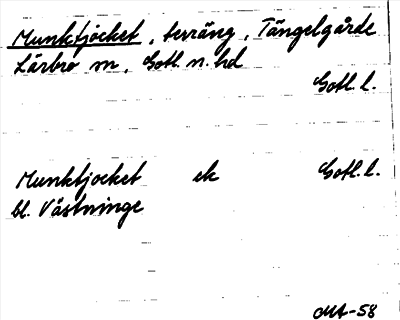 Munktjocket, terräng, Tängelgårde
Lärbro sn, Gotl. n. hd
Gotl. l.
Munktjocket ek Gotl. l.
bl. Västninge
MA-58